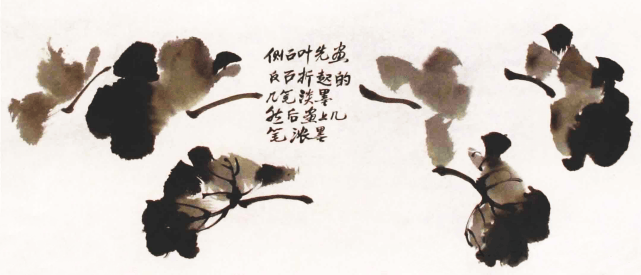 侧面叶先画
反面折起的
几笔淡墨
然后画上几
笔浓墨